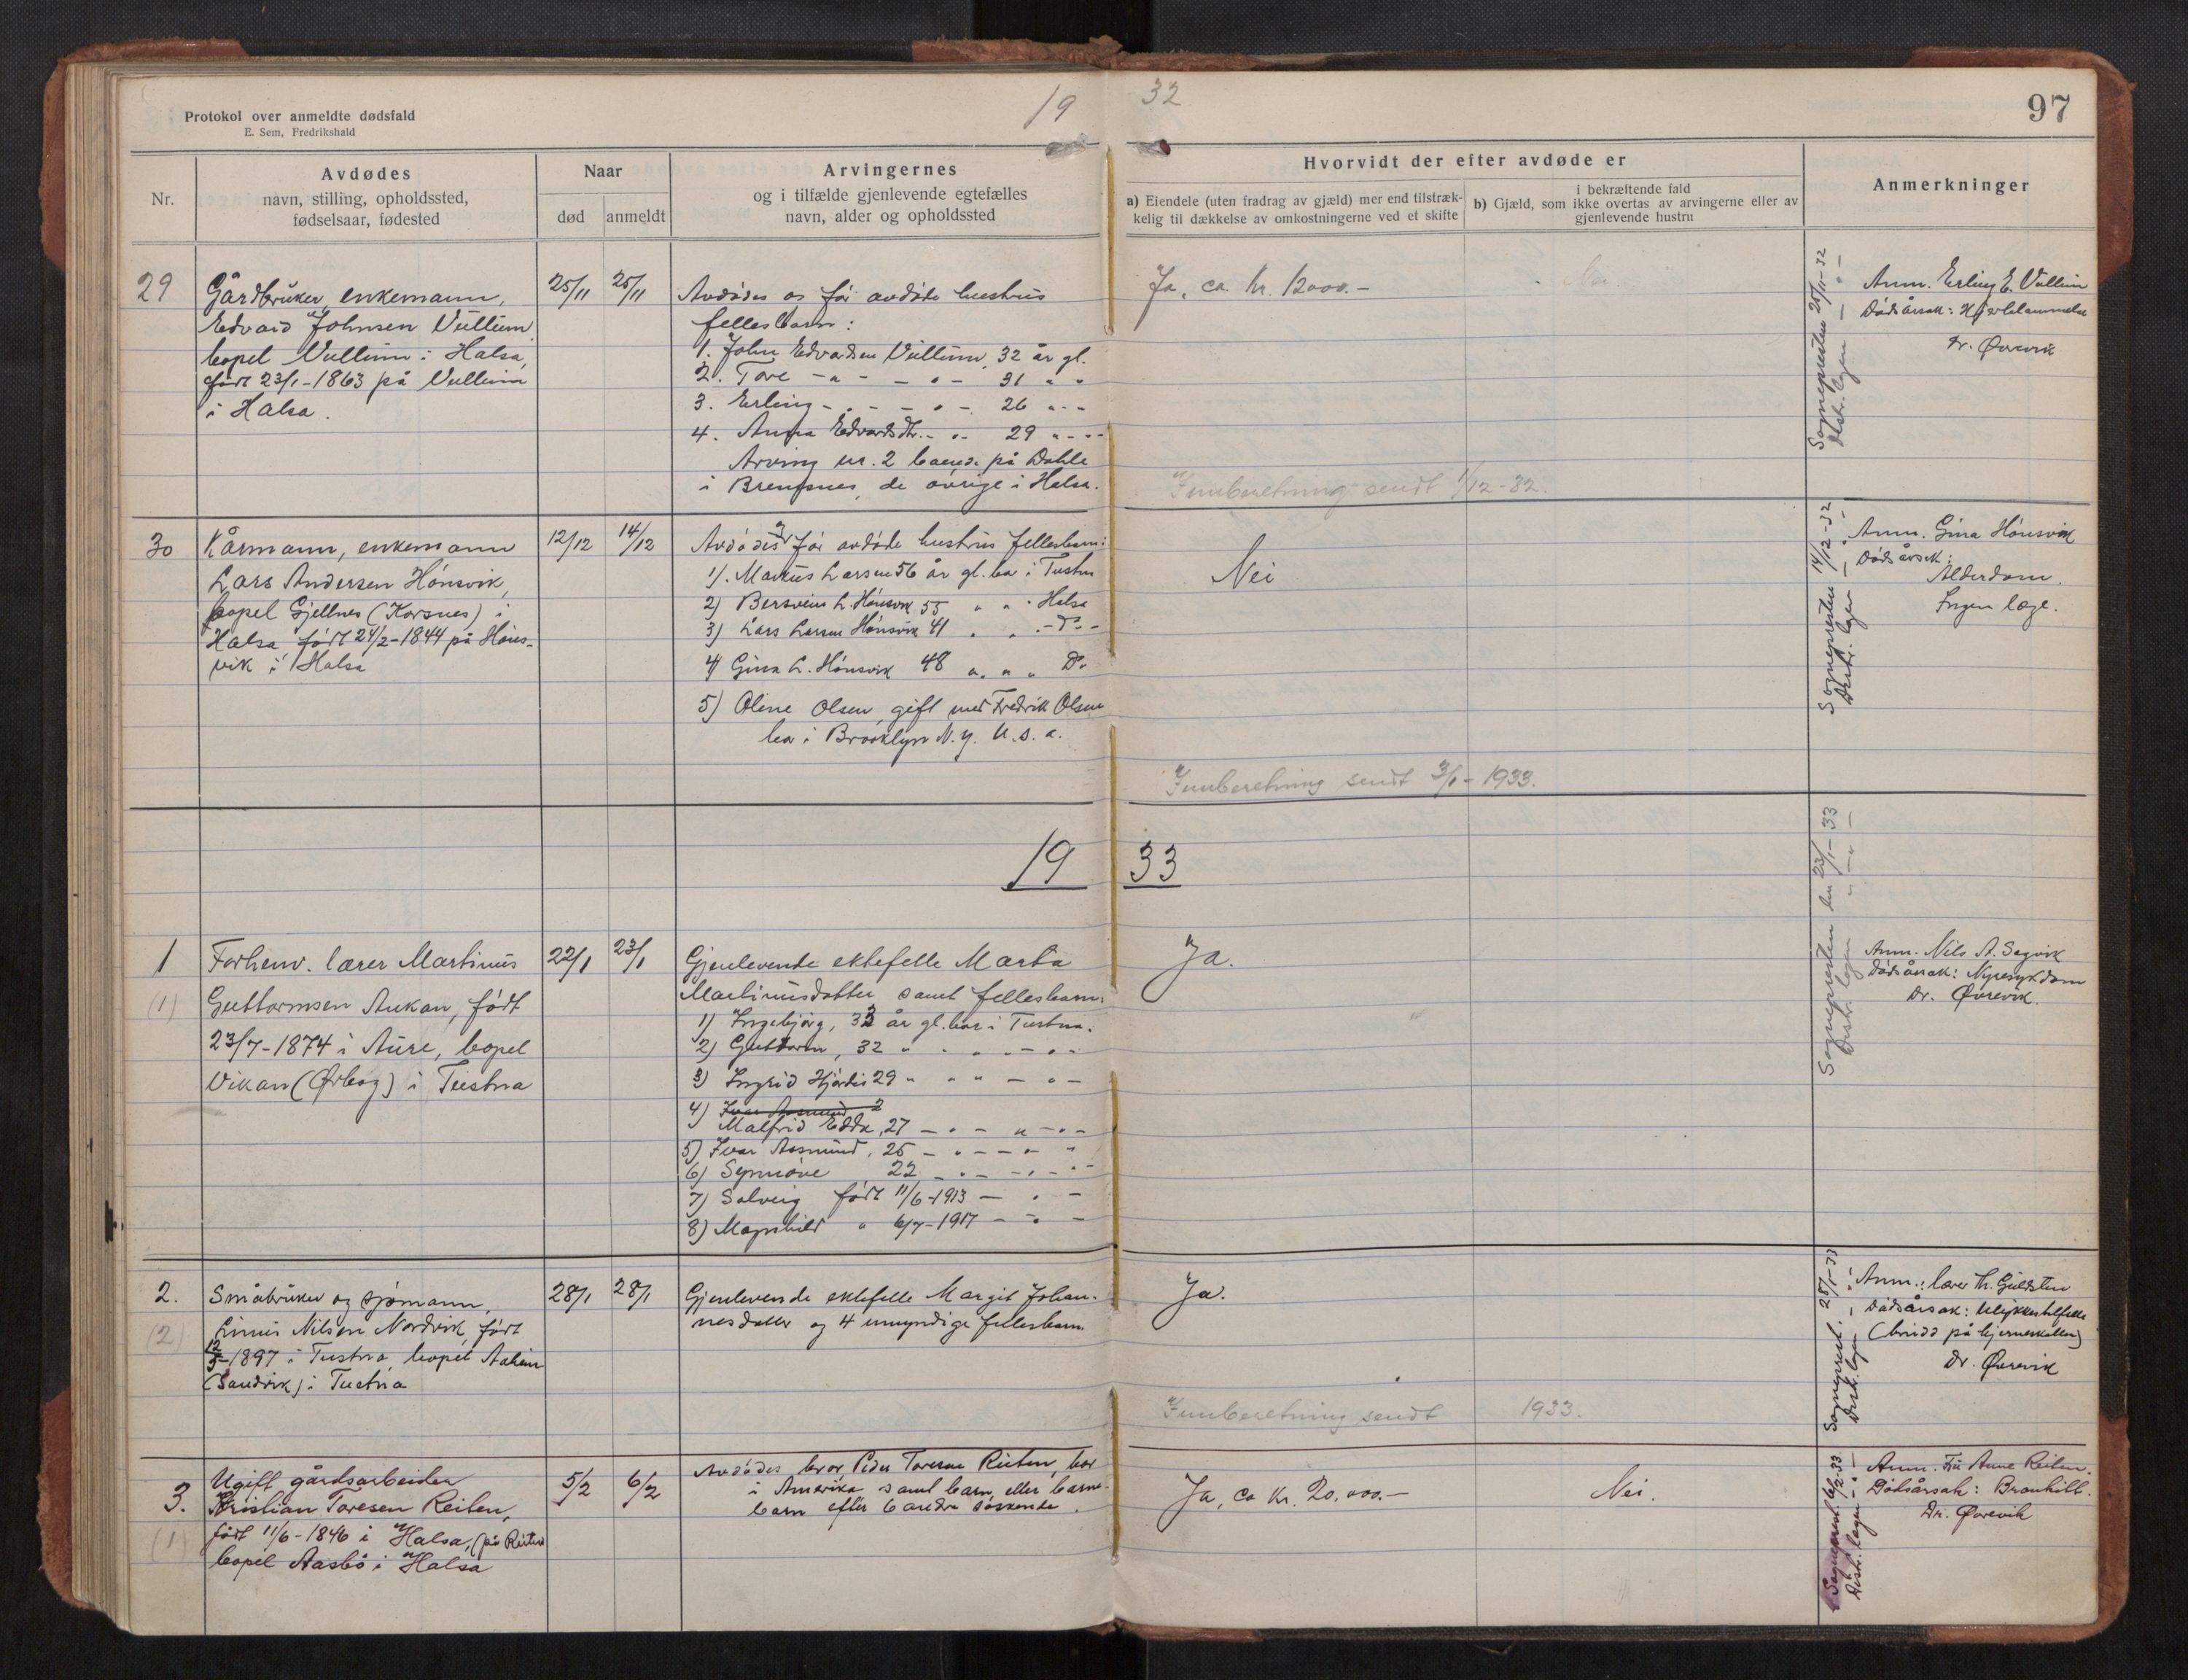 Protokol over anmeldte dødsfald
E. Sem, Fredrikshald
19 32
97
Nr.
Avdødes
navn, stilling, opholdssted,
fødselsaar, fødested
Naar
død
anmeldt
Arvingernes
og i tilfælde gjenlevende egtefælles
navn, alder og opholdssted
Hvorvidt der efter avdøde er
a) Eiendele (uten fradrag av gjæld) mer end tilstræk-
kelig til dækkelse av omkostningerne ved et skifte
i bekræftende fald
b) Gjæld, som ikke overtas av arvingerne eller av
gjenlevende hustru
Anmerkninger
29
Gårdbruker, enkemann,
Edvard Johnsen Vullum
bopel Vullum i Halsa,
født 23/1-1863 på Vullum
i Halsa.
25/11
25/11
Avdødes og før avdøde hustrus
fellesbarn:
1. John Edvardsen Vullum, 32 år gl.
2. Tore - " - - " - 31 " "
3. Erling - " - - " - 26 " - "
4. Anna Edvardsdtr. - " - 29 " - " -
Arving nr. 2 boende på Dahle
i Bremsnes, de øvrige i Halsa.
Ja, ca. kr. 12000.-
Nei
Innberetning sendt 1/12-32.
Sognepresten 25/11-32
Distr. legen - " -
Anm. Erling E. Vullum
Dødsårsak: Hjertelammelse
Dr. Øvrevik
30
Kårmann, enkemann
Lars Andersen Hønsvik,
bopel Gjellnes (Korsnes) i
Halsa født 24/2-1844 på Høns-
vik i Halsa
12/12
14/12
Avdødes og før avdøde hustrus fellesbarn:
1). Markus Larsen 56 år gl. bo i Tustna
2) Bersvein L. Hønsvik 55 " " " Halsa
3) Lars Larsen Hønsvik 41 " " - Do -
4) Gina L. Hønsvik 48 " " " Do
5) Oline Olsen, gift med Fredrik Olsen
bo i Brooklyn N.Y. U.S.A.
Nei
Innberetning sendt 3/1-1933.
Sognepresten 14/12-32
Distr. legen - " -
Anm. Gina Hønsvik
Dødsårsak:
Alderdom.
Ingen læge.
19 33
1
(1)
Forhenv. lærer Martinus
Guttormsen Aukan, født
23/7-1874 i Aure, bopel
Vikan (Ørbog) i Tustna
22/1
23/1
Gjenlevende ektefelle Marta
Martinusdatter samt fellesbarn:
1) Ingebjørg, 33 år gl. bor i Tustna.
2) Guttorm, 32 " " " - " -
3) Ingrid Hjørdis 29 " " " - " -
4) Ivar Asmund 2
Malfrid Edda, 27 - " - " - " -
5) Ivar Aasmund, 25 - " - - " - "
6) Synnøve 22 - " - - " - " -
7) Solveig født 11/6-1913 - " -
8) Magnhild " 6/7-1917 - " -
Ja.
Sognepresten den 23/1-33
Distr. legen - " - " -
Anm. Nils A. Segvik
Dødsårsak: Nyresykdom
Dr. Øvrevik.
2.
(2)
Småbruker og sjømann,
Linus Nilsen Nordvik, født
12/5-1897 i Tustna, bopel
(Sandvik) i Tustna
28/1
28/1
Gjenlevende ektefelle Margit Johan-
nesdatter og 4 umyndige fellesbarn
Ja.
Innberetning sendt 1933.
Sogneprest. 28/1-33
Distr. legen - " -
Anm.: lærer Th. Guldsten
Dødsårsak: Ulykkestilfelle
(brudd på hjerneskallen)
Dr. Øvrevik
3.
(1)
Ugift gårdsarbeider
Kristian Toresen Reiten,
født 11/6-1846 i Halsa, (på Reiten)
bopel Aasbø i Halsa
5/2
6/2
Avdødes bror, Peder Toresen Reiten, bor
i Amerika samt barn, eller barne-
barn efter 6 andre søskende.
Ja, ca kr. 20,000.-
Nei.
Sogneprest. 6/2-33.
Distr. legen - " -
Anm. Fru Anne Reiten.
Dødsårsak: Bronkitt.
Dr. Øvrevik